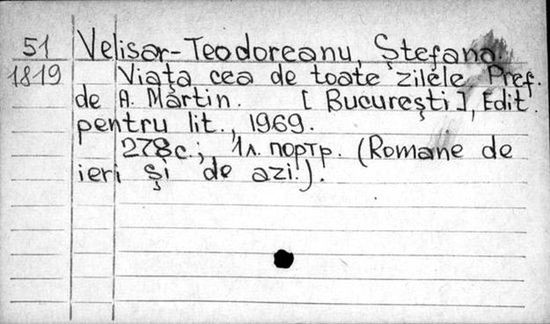 51 Velisar-Teodoreanu, Ștefana
1819 Viața cea de toate zilele. Pref.
de A. Martin. [București], Edit.
pentru lit., 1969.
278c.; 1л. портр. (Romane de
ieri și de azi).